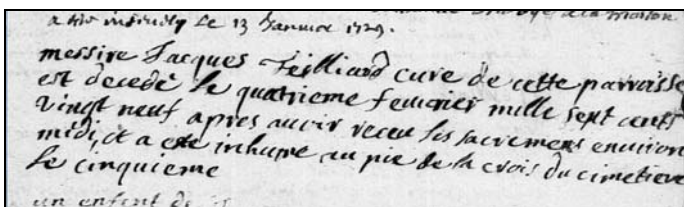 a été le 13 Janvier 1729.
messire Jacques feilliard cure de cette parroisse
est decedé le quatrieme feuvrier mille sept cents
vingt neuf apres avoir receu les sacremens environ
midi, et a esté inhumé au pie de la crois du cimetiere
le cinquieme
un enfent de